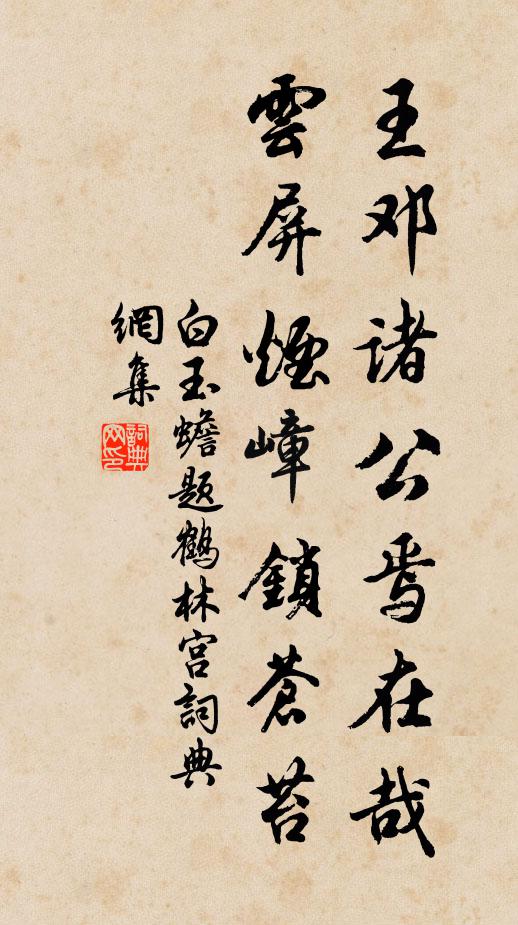 王邓诸公焉在哉
雲屏煙嶂鎖蒼苔
白玉蟾题鶴林宫詞典
網集
詞典網印